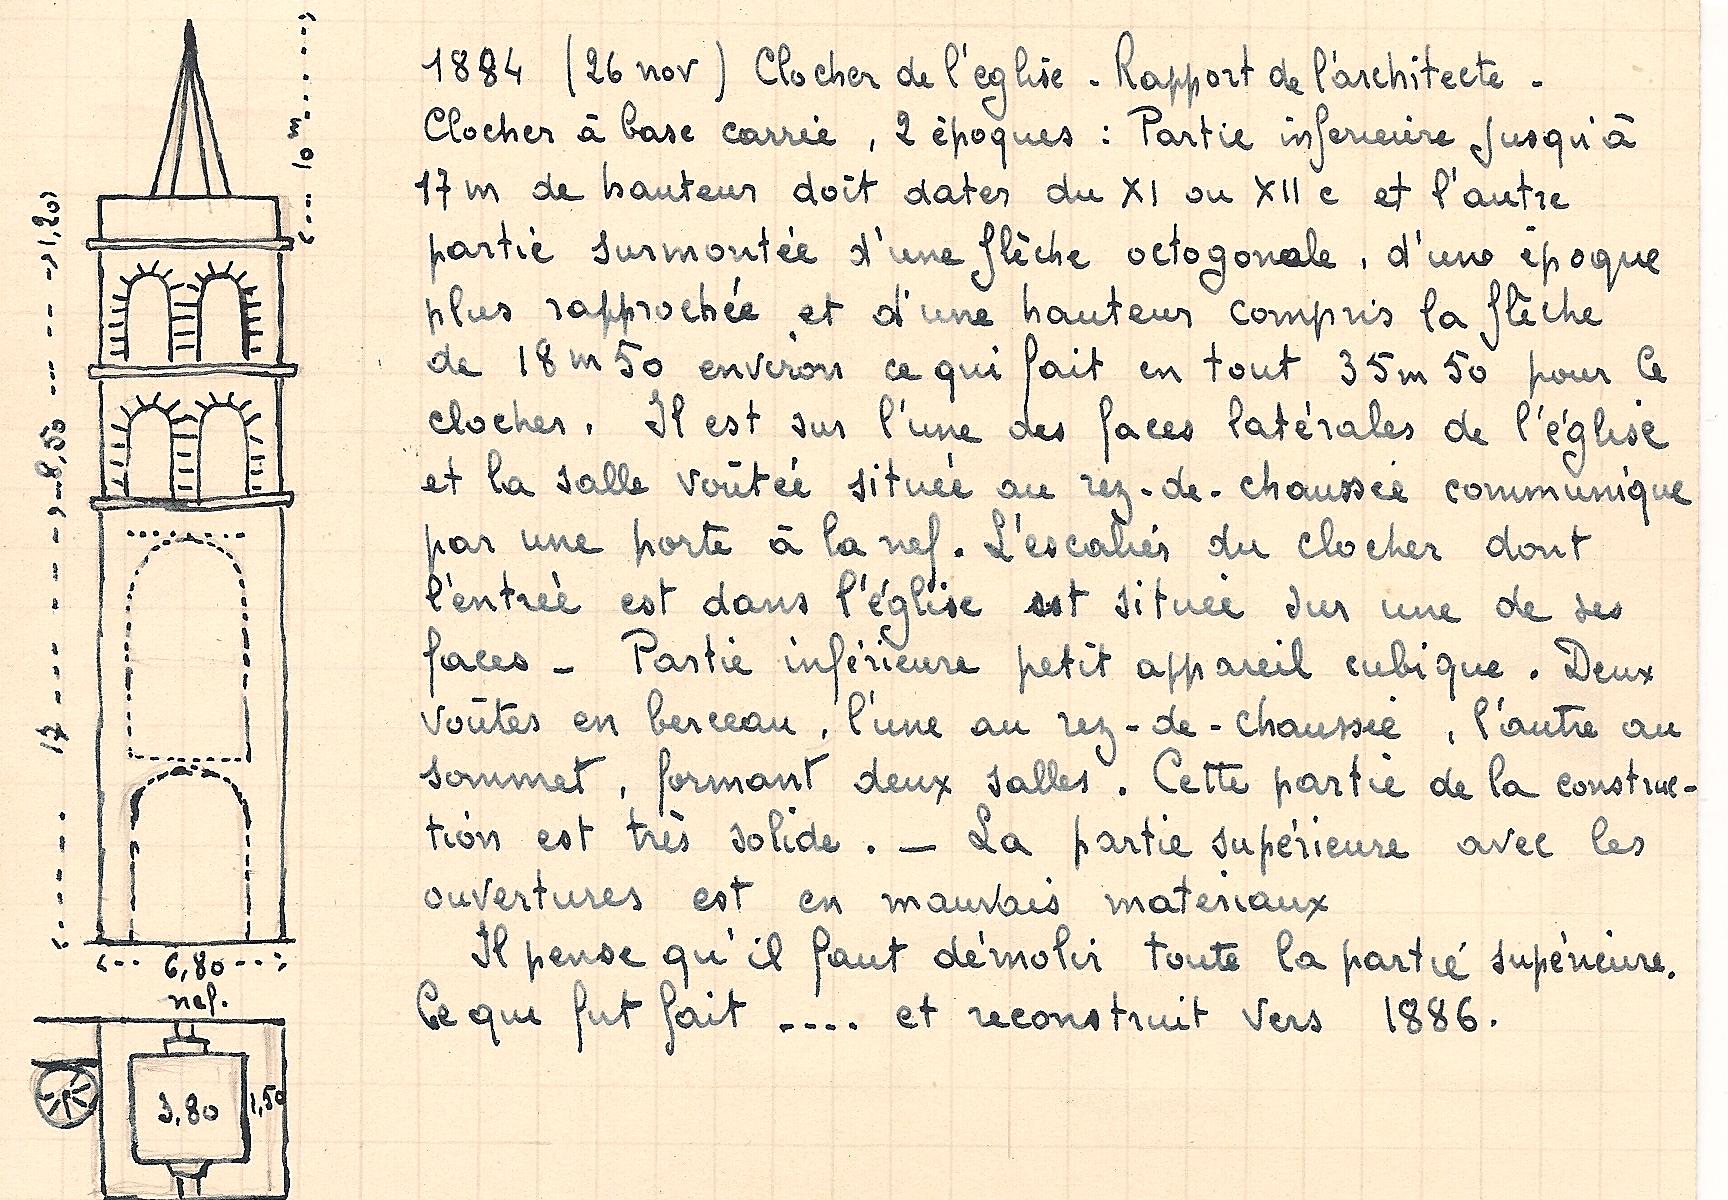 1884 (26 nov) Clocher de l'église - Rapport de l'architecte -
Clocher à base carrée, 2 époques : Partie inférieure jusqu'à
17 m de hauteur doit dater du XI ou XII e et l'autre
partie surmontée d'une flèche octogonale, d'une époque
plus rapprochée et d'une hauteur compris la flèche
de 18 m 50 environ ce qui fait en tout 35 m 50 pour le
clocher. Il est sur l'une des faces latérales de l'église
et la salle voûtée située au rez-de-chaussée communique
par une porte à la nef. L'escalier du clocher dont
l'entrée est dans l'église est située sur une de ses
faces - Partie inférieure petit appareil cubique. Deux
voûtes en berceau, l'une au rez-de-chaussée, l'autre au
sommet, formant deux salles. Cette partie de la construc-
tion est très solide. - La partie supérieure avec les
ouvertures est en mauvais materiaux
Il pense qu'il faut démolir toute la partie supérieure.
Ce que fut fait .... et reconstruit vers 1886.
10 m
1,20
8,50
17
6,80
nef.
3,80
1,50